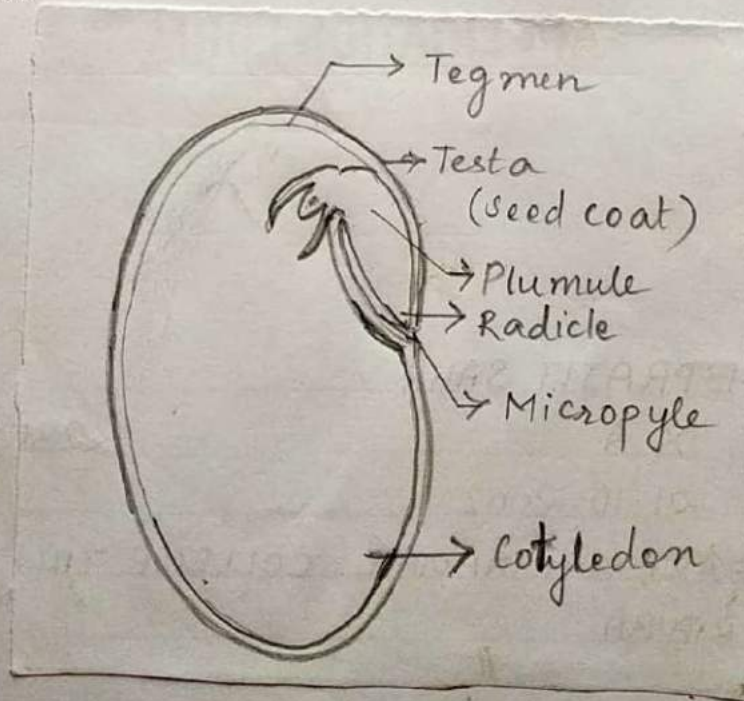 Tegmen
Testa
(seed coat)
Plumule
Radicle
Micropyle
Cotyledon